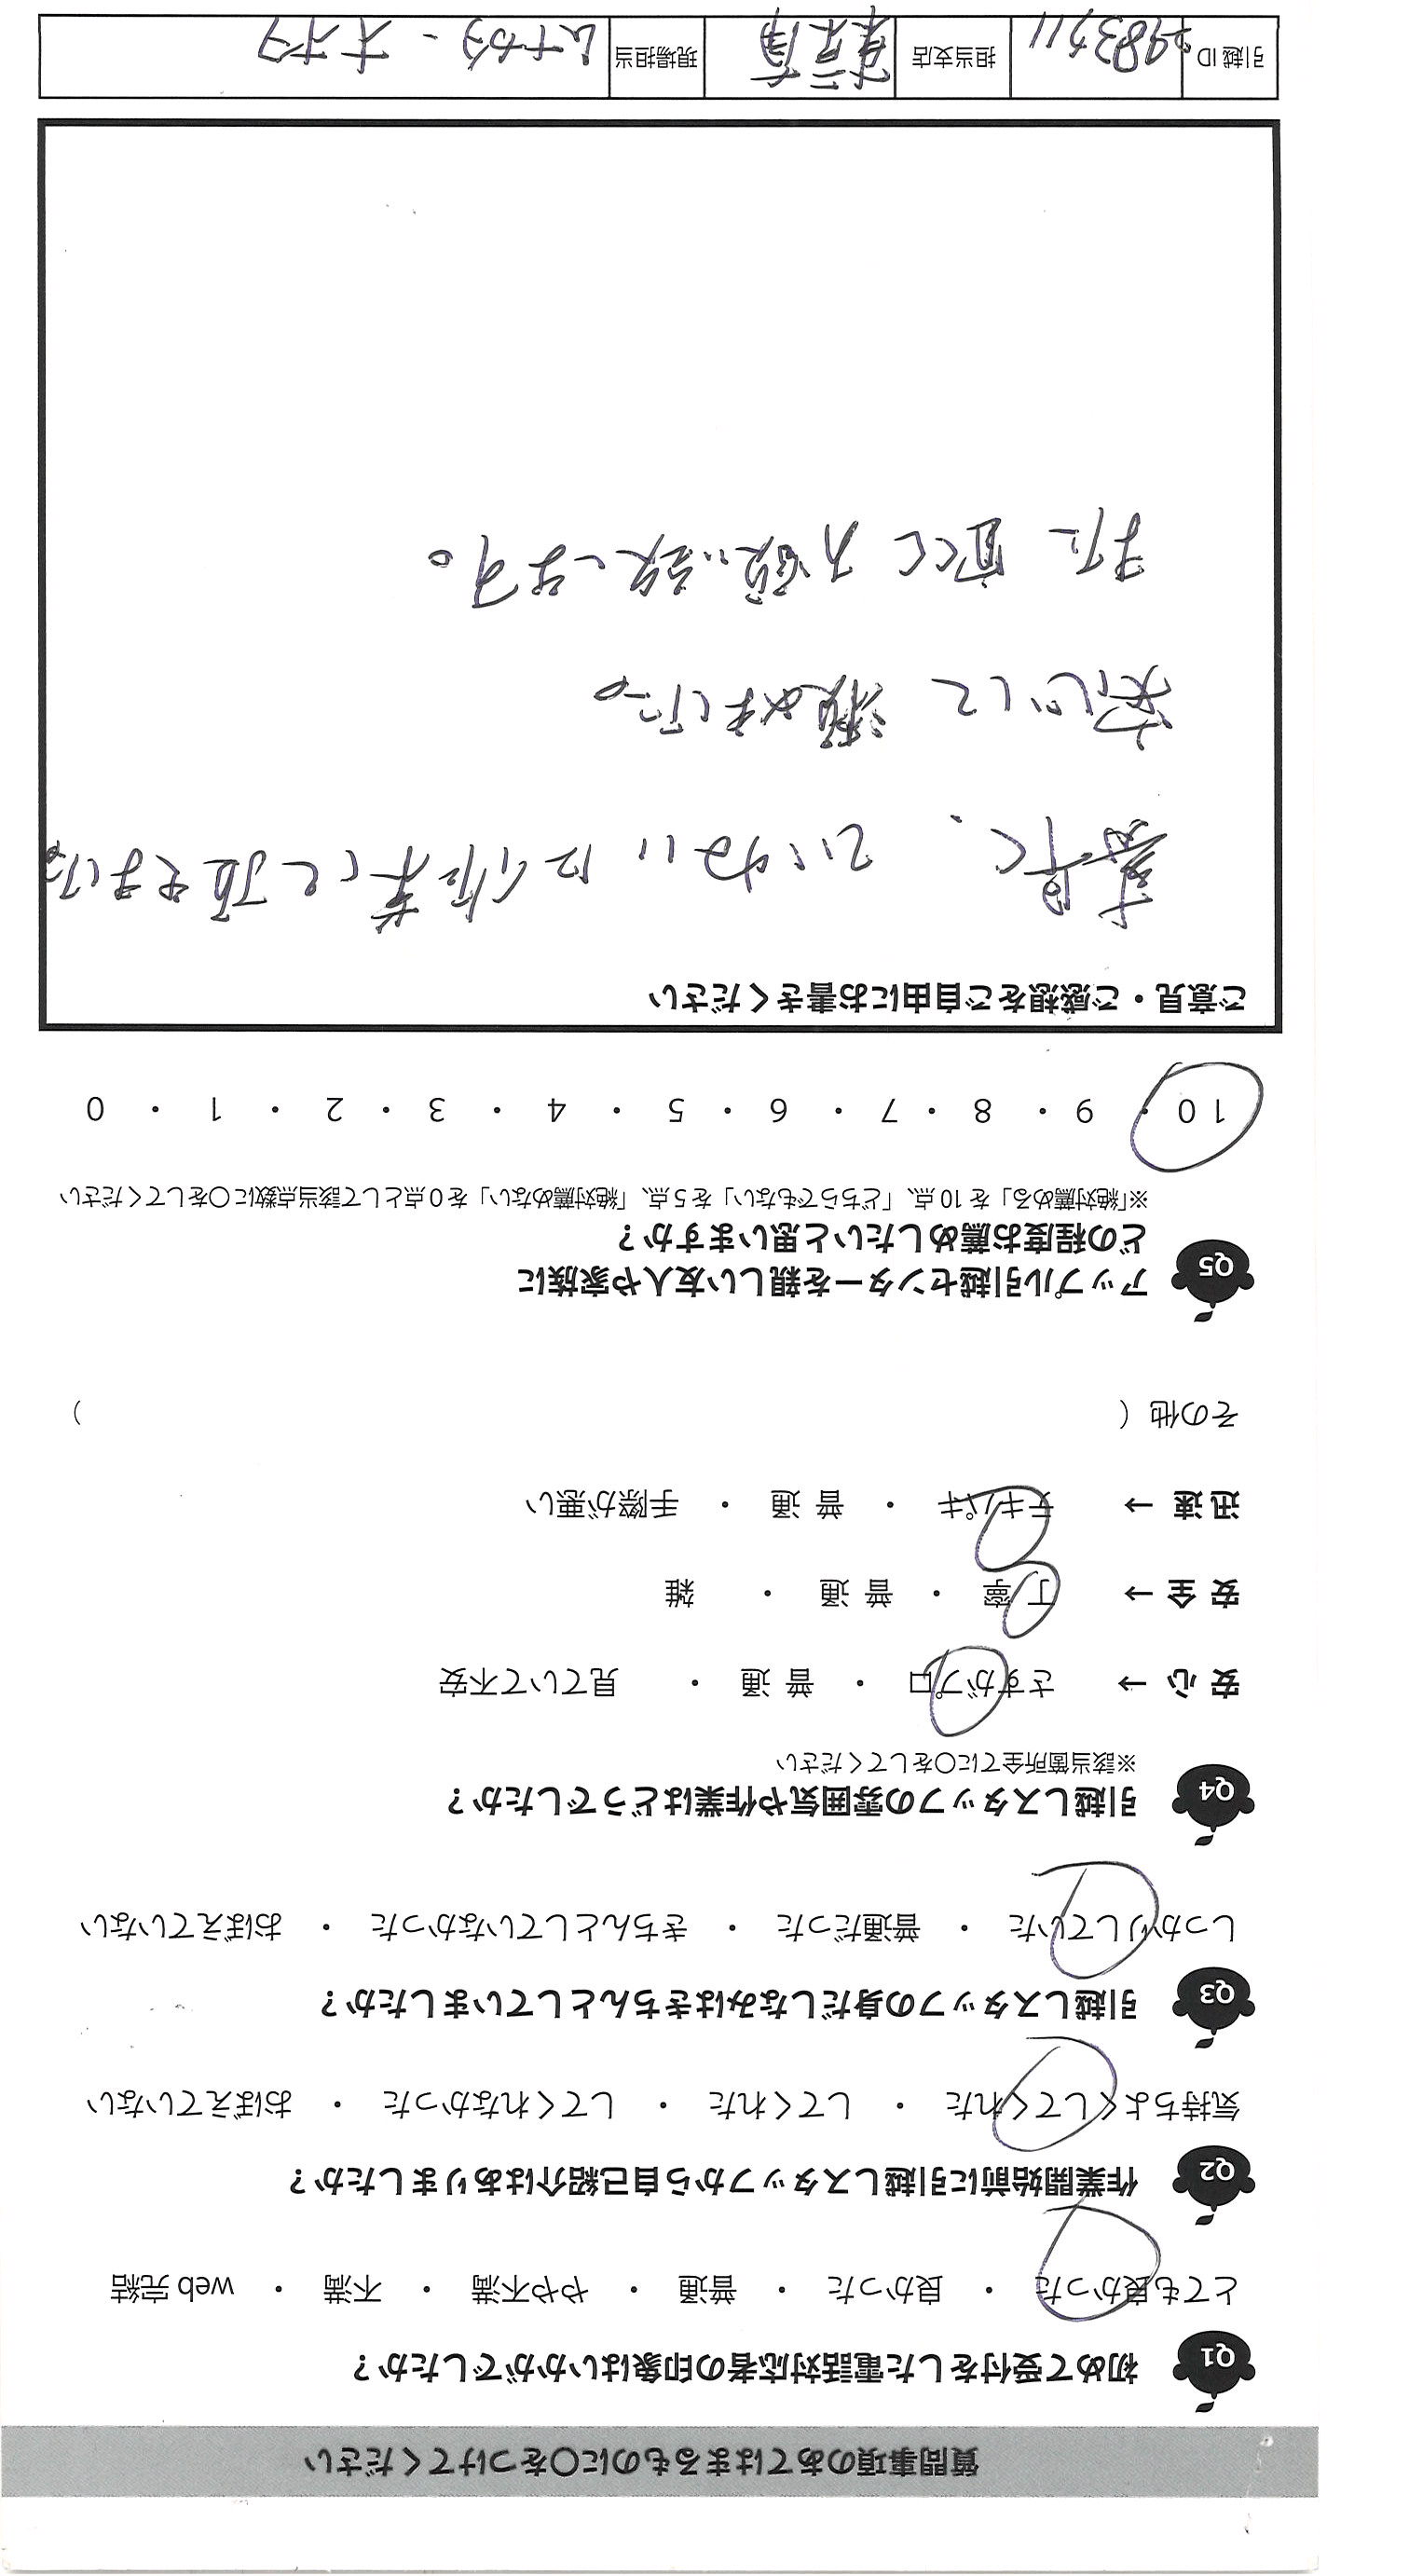 質問事項のあてはまるものに〇をつけてください
Q1 初めて受付をした電話対応者の印象はいかがでしたか？
とても良かった ・ 良かった ・ 普通 ・ やや不満 ・ 不満 ・ web 完結
Q2 作業開始前に引越しスタッフから自己紹介はありましたか？
気持ちよくしてくれた ・ してくれた ・ してくれなかった ・ おぼえていない
Q3 引越しスタッフの身だしなみはきちんとしていましたか？
しっかりしていた ・ 普通だった ・ きちんとしていなかった ・ おぼえていない
Q4 引越しスタッフの雰囲気や作業はどうでしたか？
※該当箇所全てに〇をしてください
安 心 → さすがプロ ・ 普 通 ・ 見ていて不安
安 全 → 丁 寧 ・ 普 通 ・ 雑
迅 速 → テキパキ ・ 普 通 ・ 手際が悪い
その他（ ）
Q5 アップル引越センターを親しい友人や家族に
どの程度お薦めしたいと思いますか？
※「絶対薦める」を 10 点、「どちらでもない」を 5 点、「絶対薦めない」を 0 点として該当点数に〇をしてください
10 ・ 9 ・ 8 ・ 7 ・ 6 ・ 5 ・ 4 ・ 3 ・ 2 ・ 1 ・ 0
ご意見・ご感想をご自由にお書きください
ていねいに作業して頂きました。
安心して頼めました。
また宜しくお願い致します。
引越 ID 担当支店 現場担当